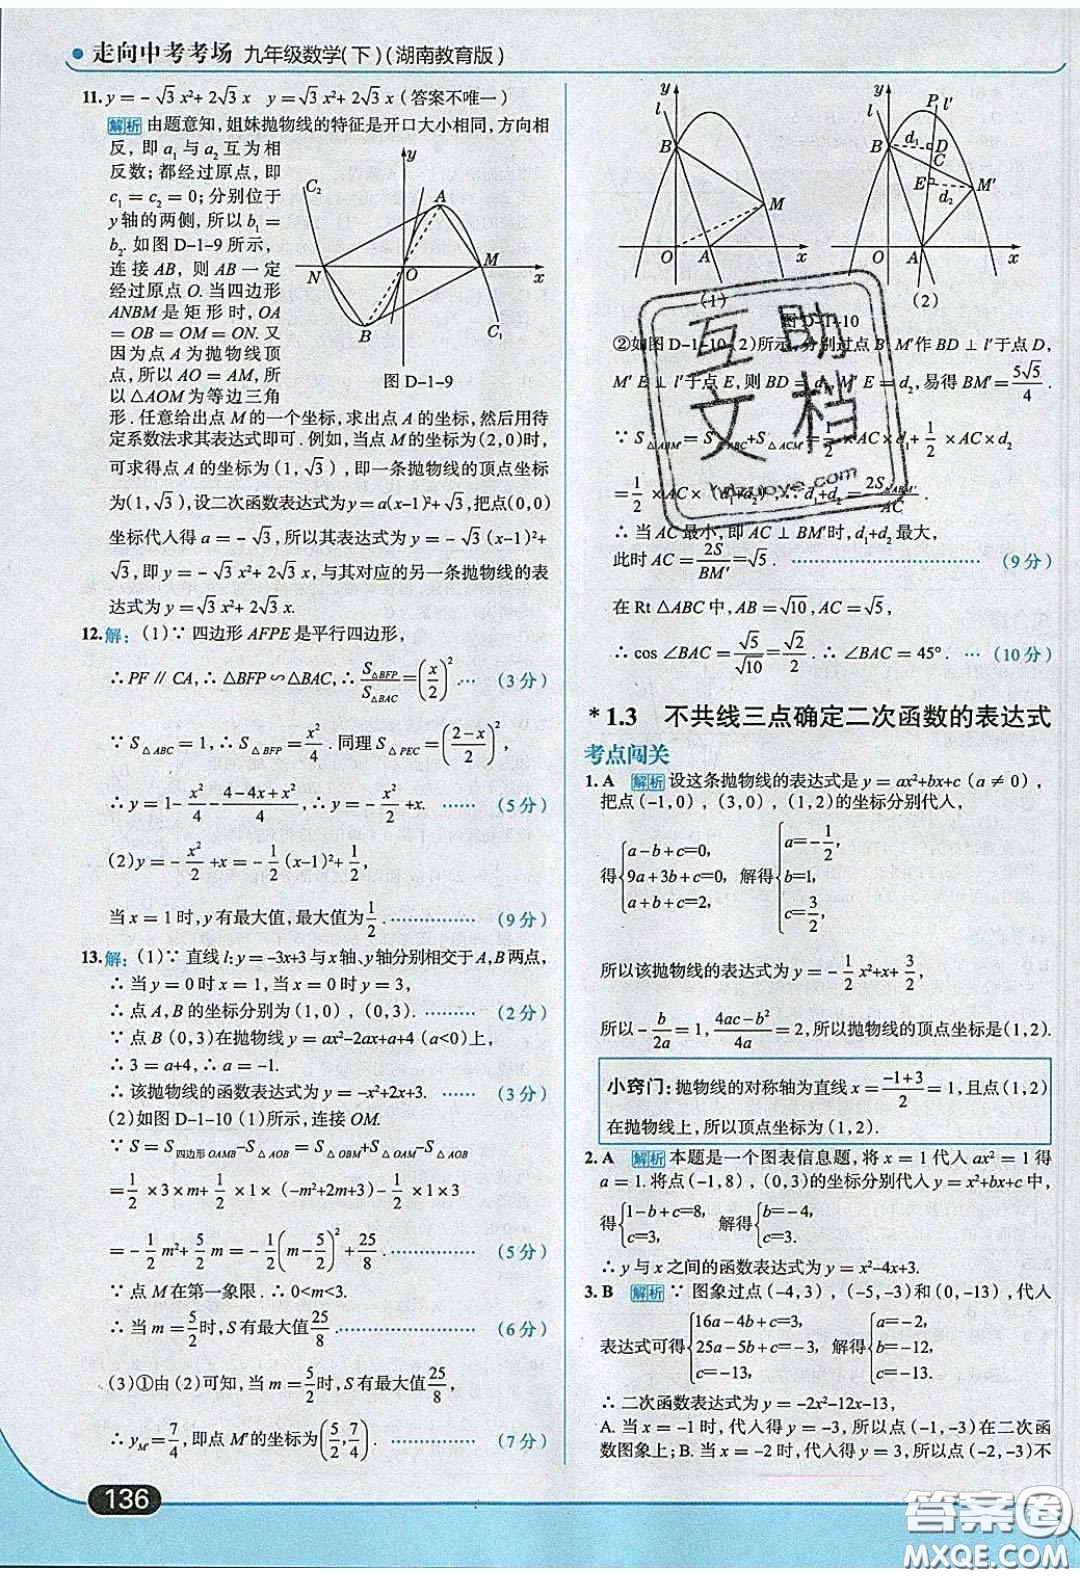 走向中考考场 九年级数学(下)(湖南教育版)
11. y=-√3x²+2√3x y=√3x²+2√3x(答案不唯一)
解析 由题意知,姐妹抛物线的特征是开口大小相同,方向相
反,即a₁与a₂互为相
反数;都经过原点,即
c₁=c₂=0;分别位于
y轴的两侧,所以b₁=
b₂.如图D-1-9所示,
连接AB,则AB一定
经过原点O.当四边形
ANBM是矩形时,OA
=OB=OM=ON.又
因为点A为抛物线顶
点,所以AO=AM,所
以△AOM为等边三角
C₂ y A N O M x B C₁
图D-1-9
形.任意给出点M的一个坐标,求出点A的坐标,然后用待
定系数法求其表达式即可.例如,当点M的坐标为(2,0)时,
可求得点A的坐标为(1,√3),即一条抛物线的顶点坐标
为(1,√3),设二次函数表达式为y=a(x-1)²+√3,把点(0,0)
坐标代入得a=-√3,所以其表达式为y=-√3(x-1)²+
√3,即y=-√3x²+2√3x,与其对应的另一条抛物线的表
达式为y=√3x²+2√3x.
12.解:(1)∵四边形AFPE是平行四边形,
∴PF∥CA,∴△BFP∽△BAC,∴S△BFP/S△BAC=(x/2)².… (3分)
∵S△ABC=1,∴S△BFP=x²/4.同理S△PEC=((2-x)/2)²,
∴y=1-x²/4-(4-4x+x²)/4,∴y=-x²/2+x. …… (5分)
(2)y=-x²/2+x=-1/2(x-1)²+1/2,
当x=1时,y有最大值,最大值为1/2.…………… (9分)
13.解:(1)∵直线l:y=-3x+3与x轴、y轴分别相交于A,B两点,
∴当y=0时x=1,当x=0时y=3,
∴点A,B的坐标分别为(1,0),(0,3).……… (2分)
∵点B(0,3)在抛物线y=ax²-2ax+a+4(a<0)上,
∴3=a+4,∴a=-1.
∴该抛物线的函数表达式为y=-x²+2x+3. …… (3分)
(2)如图D-1-10(1)所示,连接OM.
∵S=S四边形OAMB-S△AOB=S△OBM+S△OAM-S△AOB
=1/2×3×m+1/2×1×(-m²+2m+3)-1/2×1×3
=-1/2m²+5/2m=-1/2(m-5/2)²+25/8.…………… (5分)
∵点M在第一象限.∴0<m<3.
∴当m=5/2时,S有最大值25/8.…………………… (6分)
(3)①由(2)可知,当m=5/2时,S有最大值25/8,
∴yM′=7/4,即点M′的坐标为(5/2,7/4). ………… (7分)
l y B M O A x
(1)
y P l′ l B d₁ D C E M′ d₂ O A x
(2)
图D-1-10
②如图D-1-10(2)所示,分别过点B,M′作BD⊥l′于点D,
M′E⊥l′于点E,则BD=d₁,M′E=d₂,易得BM′=5√5/4.
∵S△ABM′=S△ABC+S△ACM′=1/2×AC×d₁+1/2×AC×d₂
=1/2×AC×(d₁+d₂),∴d₁+d₂=2S△ABM′/AC.
∴当AC最小,即AC⊥BM′时,d₁+d₂最大,
此时AC=2S/BM′=√5. …………………… (9分)
在Rt△ABC中,AB=√10,AC=√5,
∴cos∠BAC=√5/√10=√2/2.∴∠BAC=45°. … (10分)
*1.3 不共线三点确定二次函数的表达式
考点闯关
1. A 解析 设这条抛物线的表达式是y=ax²+bx+c(a≠0),
把点(-1,0),(3,0),(1,2)的坐标分别代入,
得{a-b+c=0, 9a+3b+c=0, a+b+c=2, 解得{a=-1/2, b=1, c=3/2,
所以该抛物线的表达式为y=-1/2x²+x+3/2,
所以-b/2a=1,(4ac-b²)/4a=2,所以抛物线的顶点坐标是(1,2).
小窍门:抛物线的对称轴为直线x=(-1+3)/2=1,且点(1,2)
在抛物线上,所以顶点坐标为(1,2).
2. A 解析 本题是一个图表信息题,将x=1代入ax²=1得
a=1.将点(-1,8),(0,3)的坐标分别代入y=x²+bx+c中,
得{1-b+c=8, c=3, 解得{b=-4, c=3.
∴y与x之间的函数表达式为y=x²-4x+3.
3. B 解析 ∵图象过点(-4,3),(-5,-3)和(0,-13),代入
表达式可得{16a-4b+c=3, 25a-5b+c=-3, c=-13, 解得{a=-2, b=-12, c=-13.
∴二次函数表达式为y=-2x²-12x-13,
A.当x=-1时,代入得y=-3,所以点(-1,-3)在二次函
数图象上;B.当x=-2时,代入得y=3,所以点(-2,-3)不
136
互助文档
答案圈
MXQE.COM